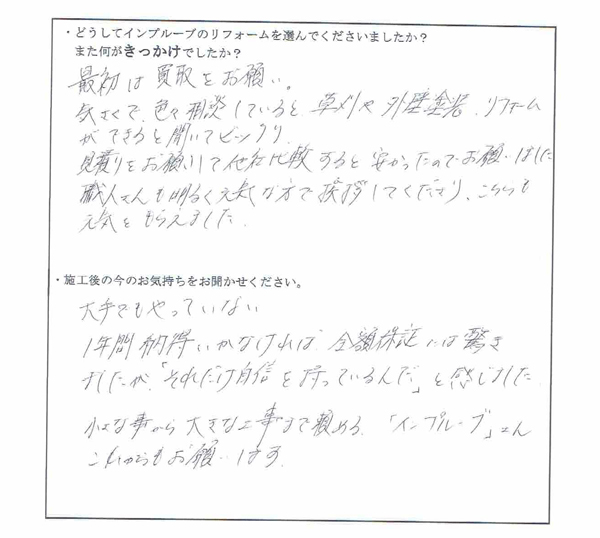 ・どうしてインプルーブのリフォームを選んでくださいましたか？
また何がきっかけでしたか？
最初は買取をお願い。
気さくで、色々相談していると、草刈や外壁塗装、リフォーム
ができると聞いてビックリ
見積りをお願いして他社比較すると安かったのでお願いしました
職人さんも明るく元気な方で挨拶してくださり、こちらも
元気をもらえました。
・施工後の今のお気持ちをお聞かせください。
大手でもやっていない
1年間納得いかなければ全額保証には驚き
ましたが、「それだけ自信を持っているんだ」と感じました
小さな事から大きな工事まで頼める「インプルーブ」さん
これからもお願いします。